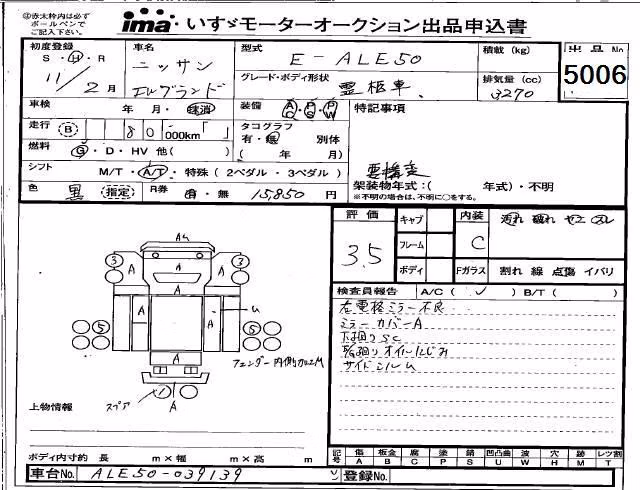 ①赤太枠内は必ず
ボールペンで
ご記入下さい。
ima いすゞモーターオークション出品申込書
初度登録
S・H・R
11／2月
車名
ニッサン
エルグランド
型式
E-ALE50
グレード・ボディ形状
霊柩車
積載(kg)
排気量(cc)
3270
出品No
5006
車検 年 月・抹消
装備 AC・PS・PW
特記事項
走行 (B) 80 000km
タコグラフ
有・無 別体
( 年 月)
燃料 G・D・HV 他( )
シフト M/T・A/T・特殊(2ペダル・3ペダル)
架装物年式:( 年式)・不明
※不明の場合は、不明に○をする。
色 黒 (指定) R券 有・無 15,850 円
評価
3.5
キャブ
フレーム
ボディ
内装
C
汚れ 破れ ヤニ スレ
Fガラス 割れ 線 点傷 イバリ
検査員報告 A/C( ✓ ) B/T( )
右電格ミラー不良
ミラーカバーA
下廻りSC
オイルにじみ
AU
3 A A 3
A
A A A A U
5 5
A
フェンダー内側
1
スペア
A
上物情報
ボディ内寸約 長 m×幅 m×高 m
記号 傷 板金 腐 塗 錆 凹凸曲 波 穴 跡 レツ割
A B C P S U W H M T
車台No. ALE50-039139
リン 登録No.